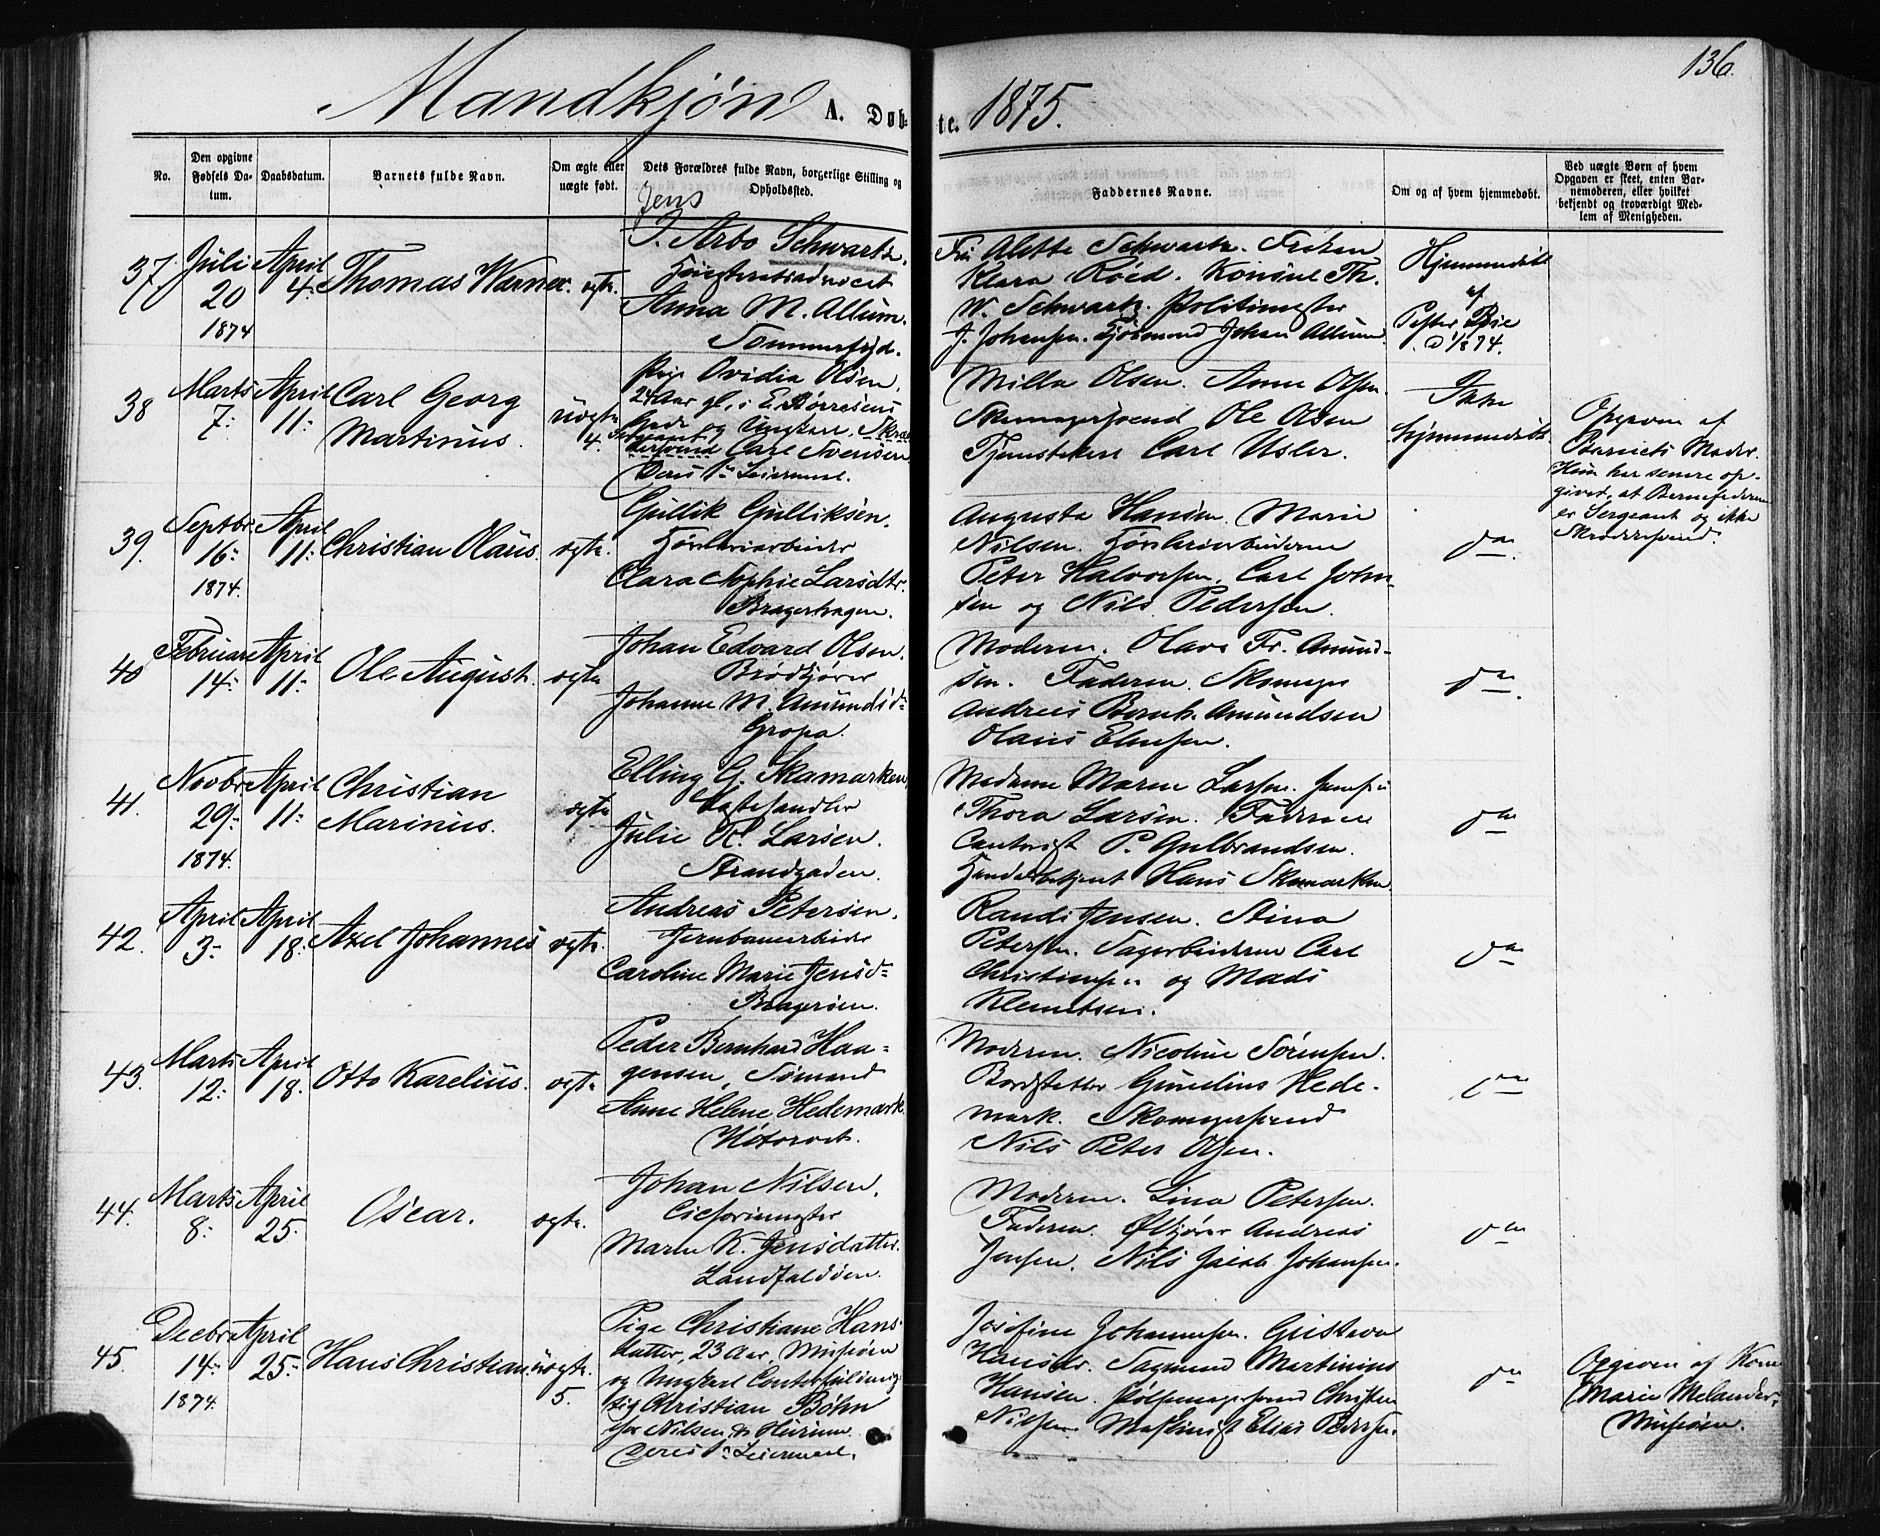 136.
Mandkjøn A. Døbte. 1875.
No.
Den opgivne Fødsels Datum.
Daabsdatum.
Barnets fulde Navn.
Om ægte eller uægte født.
Dets Forældres fulde Navn, borgerlige Stilling og Opholdssted.
Faddernes Navne.
Om og af hvem hjemmedøbt.
Ved uægte Børn af hvem Opgaven er skeet, enten Barnemoderen, eller hvilket bekjendt og troværdigt Medlem af Menigheden.
37.
Juli
20
1874
April
4.
Thomas Warner.
ægte.
Jens
J. Arbo Schwartz.
Høiesteretsadvocat
Anna M. Allum.
Sommerfryd.
Fru Alette Schwartz. Frøken
Klara Röed. Konsul Th.
W. Schwartz. Politimester
J. Johansen. Johan Allum
Hjemmedøbt
af
Pastor Bie
1/8 74.
38
Marts
7.
April
11.
Carl Georg
Martinus.
uægte
4.
Pige Ovidia Olsen,
24 Aar gl., i E. Børresens
Gade og Ungkarl, Skræd-
Sergeant
dersvend Carl Svensen
Deres 1ste Leiermaal.
Milla Olsen. Anne Olsen.
Skomagersvend Ole Olsen
Tjenestekarl Carl Usler.
Ikke
hjemmedøbt
Opgaven af
Barnets Moder.
Hun har senere op-
givet, at Barnefaderen
er Sergeant og ikke
Skrædersvend.
39.
Septbr
16.
1874.
April
11.
Christian Olaus.
ægte.
Gullik Gulliksen.
Clara Sophie Larsdtr.
Bragerhagen.
Augusta Hansen. Marie
Nilsen.
Peter Halvorsen. Carl John-
sen og Nils Pedersen.
do
40
Februar
14.
April
11.
Ole August.
ægte
Johan Edvard Olsen.
Brødkjører
Johanne M. Amundsd.
Gropa.
Moderen. Olava Fr. Amund-
sen. Faderen. Skomager
Andreas Bernh. Amundsen
Olaus Elusen.
do
41.
Novbr
29.
1874.
April
11.
Christian
Marinus.
ægte
Elling G. Skamarken
Julie K. Larsen.
Strandgaden.
Madame Maren Larsen. Jomfru
Thora Larsen. Faderen
P. Gulbrandsen.
Handelsbetjent Hans Skamarken.
do
42.
April
3.
April
18.
Axel Johannes
ægte.
Andreas Petersen.
Jernbanearbeider
Caroline Marie Jensd.
Bragerøen.
Randi Jensen. Stina
Petersen. Sagarbeiderne Carl
Christiansen og Mads
Klemetsen.
do
43.
Marts
12.
April
18.
Otto Karelius.
ægte.
Peder Bernhard Haa-
gensen, Sømand
Anne Helene Hedemark.
Høtorvet.
Moderen. Nicoline Sörensen.
Bordstabler Gunelius Hede-
mark. Skomagersvend
Nils Peter Olsen.
do
44.
Marts
8.
April
25.
Oscar.
ægte.
Johan Nilsen.
Maren K. Jensdatter.
Landfaldöen.
Moderen. Lina Petersen.
Faderen. Ølkjører Andreas
Jensen. Nils Jacob Johansen.
do
45.
Decbr
14.
1874.
April
25.
Hans Christian.
uægte.
5.
Pige Christiane Hans-
datter, 23 Aar,
og Ungkarl
Christian Böhn
Deres 1ste Leiermaal.
Josefine Johannesen. Gustava
Hansdr. Sagmand Martinius
Hansen. Pølsemagersvend Christen
Nilsen. Maskinist Elias Pedersen.
do
Opgaven af Kone
Marie Melander,